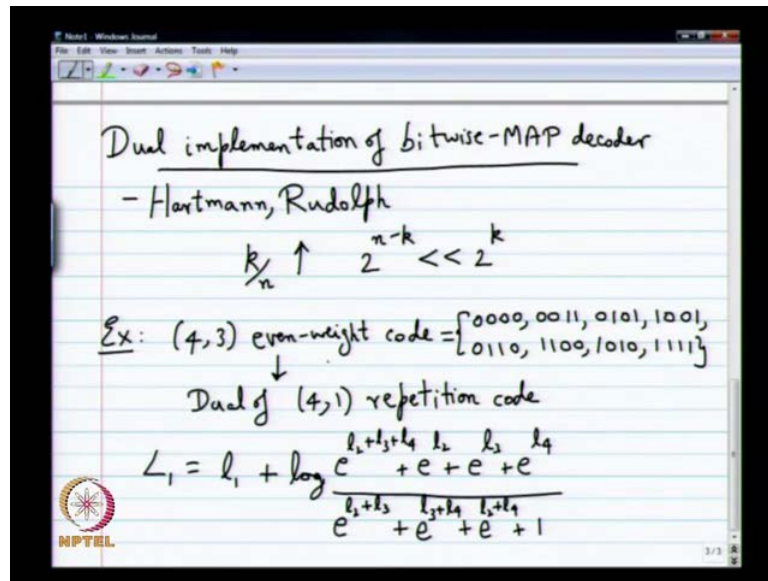 Note1 - Windows Journal
File Edit View Insert Actions Tools Help
Dual implementation of bitwise-MAP decoder
- Hartmann, Rudolph
k/n ↑ 2^{n-k} << 2^k
Ex: (4,3) even-weight code = {0000, 0011, 0101, 1001,
0110, 1100, 1010, 1111}
↓
Dual of (4,1) repetition code
L₁ = l₁ + log (e^{l₂+l₃+l₄} + e^{l₂} + e^{l₃} + e^{l₄}) / (e^{l₂+l₃} + e^{l₃+l₄} + e^{l₂+l₄} + 1)
NPTEL
3/3